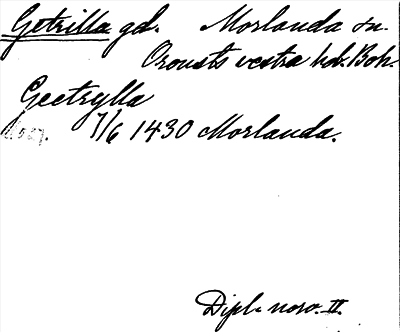 Getrilla gd. Morlanda sn.
Orousts vestra hd. Boh.
Geetrylla
7/6 1430 Morlanda.
Dipl. norv. II.